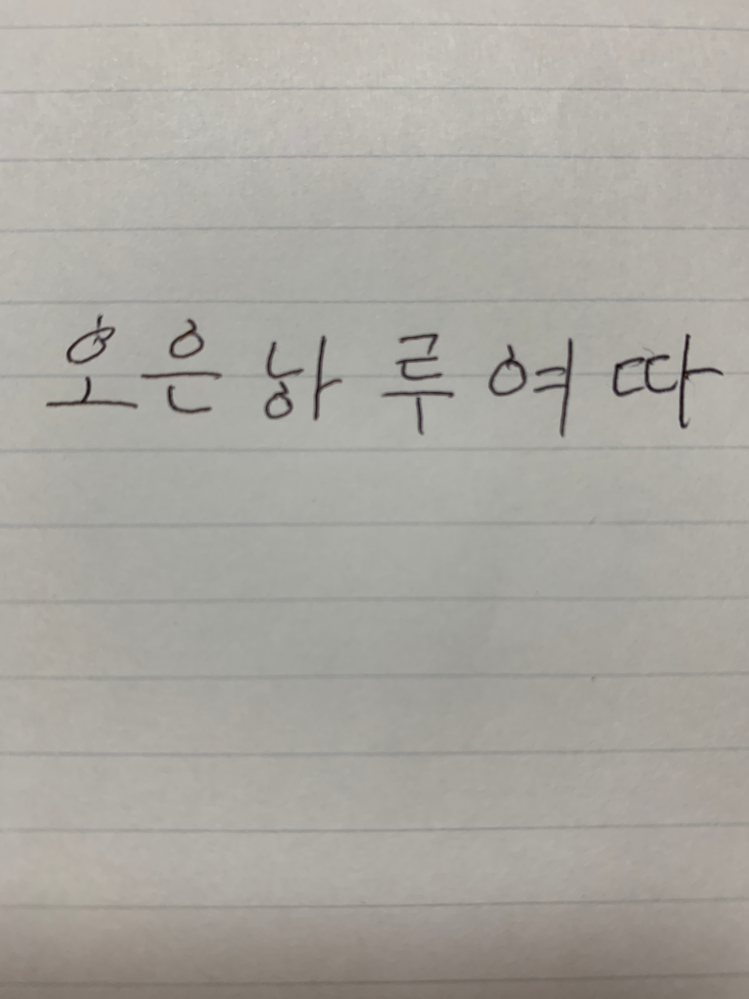 오은하루여따